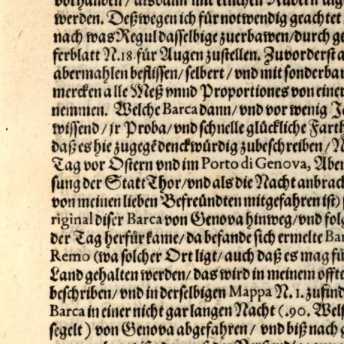 vorhanden / alsdann mit etlichen Rudern
werden. Deßwegen ich für notwendig geachtet
nach was Regul dasselbige zuerbawen / durch ge
ferblatt N. 18. für Augen zustellen. Zuvorderst a
abermahlen beflissen / selbert / vnd mit sonderbar
mercken alle Meß vnnd Proportiones von einer
nemmen. Welche Barca dann / vnd vor wenig J
wissend / jr Proba / vnd schnelle glückliche Farth
daß es hie zugegẽ denckwürdig zubeschreiben / N
Tag vor Ostern vnd im Porto di Genova, Aben
sung der Statt Thor / vnd als die Nacht anbrach
von meinen lieben Befreundten mitgefahren ist)
riginal diser Barca von Genova hinweg / vnd folg
der Tag herfür kame / da befande sich ermelte Bar
Remo (wa solcher Ort ligt / auch daß es mag fü
Land gehalten werden / das wird in meinem offte
beschriben / vnd in derselbigen Mappa N. 1. zufind
Barca in einer nicht gar langen Nacht (.90. Welsc
segelt) von Genova abgefahren / vnd biß nach g